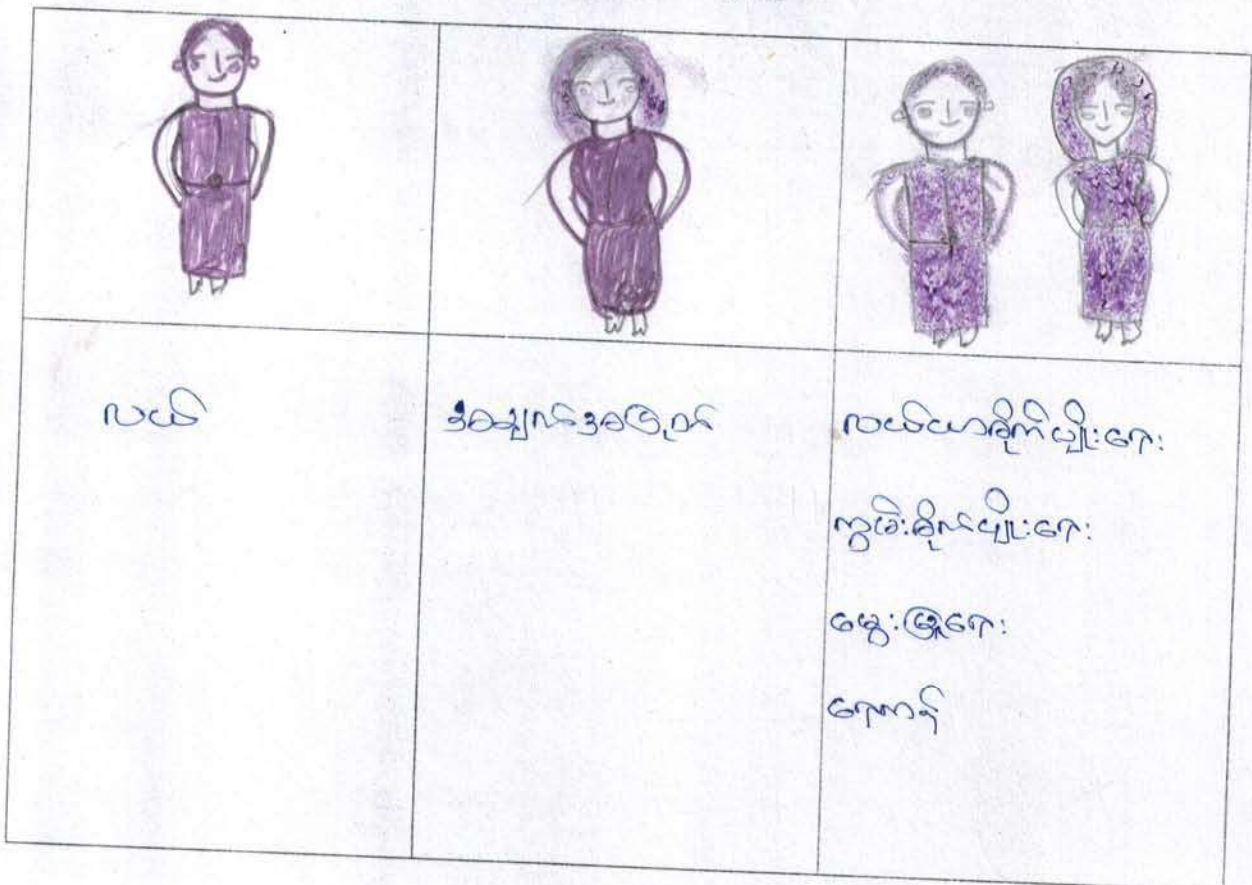 လယ်
အချက်အပြုတ်
လယ်ယာစိုက်ပျိုးရေး
ကွမ်းစိုက်ပျိုးရေး
မွေးမြူရေး
ရေကန်